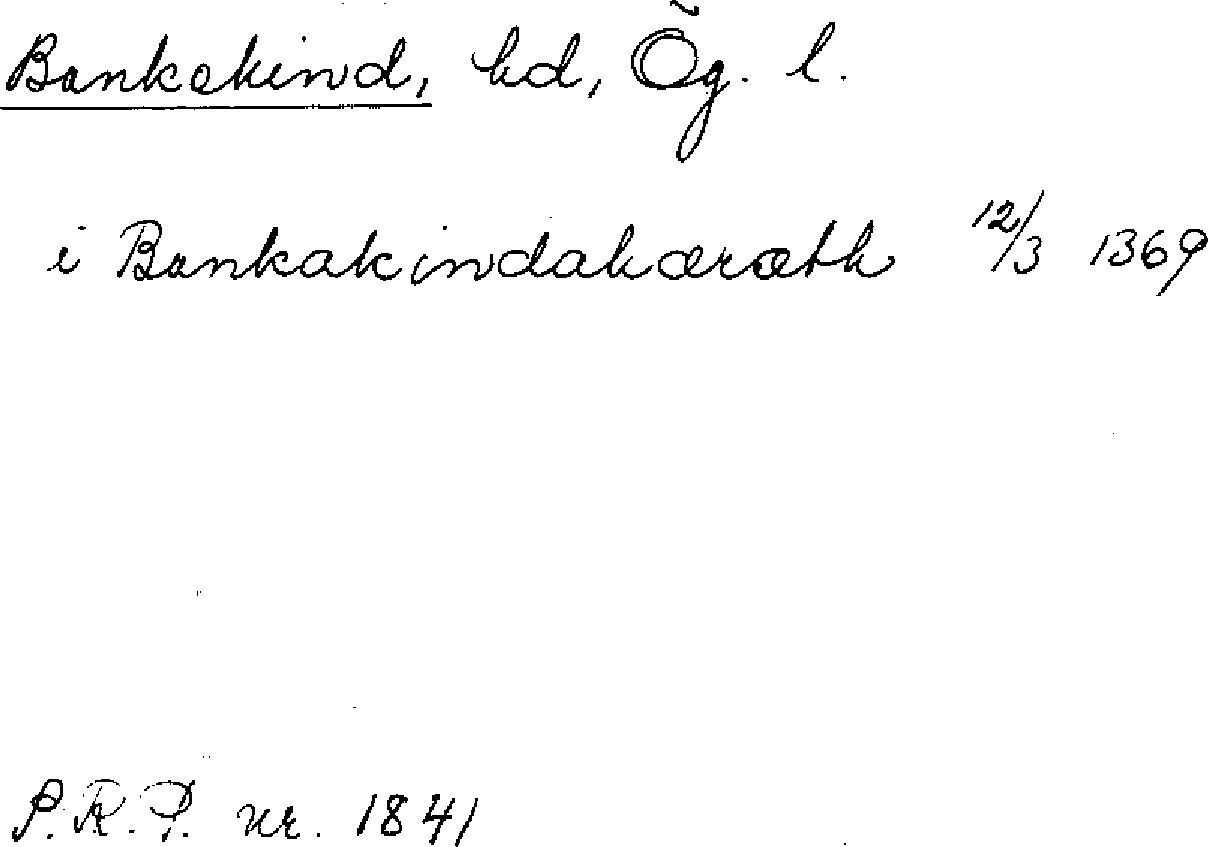 Bankekind, hd, Ög. l.
i Bankakindahæræth 12/3 1369
S.R.P. nr. 1841